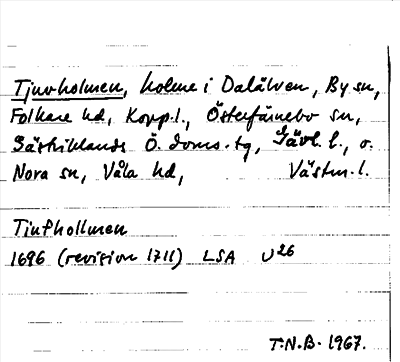 Tjuvholmen, holme i Dalälven, By sn,
Folkare hd, Kopp.l., Österfärnebo sn,
Gästriklands Ö. doms.tg, Gävl. l., o.
Nora sn, Våla hd, Västm. l.
Tiufhollmen
1696 (revision 1711) LSA U26
T.N.B. 1967.